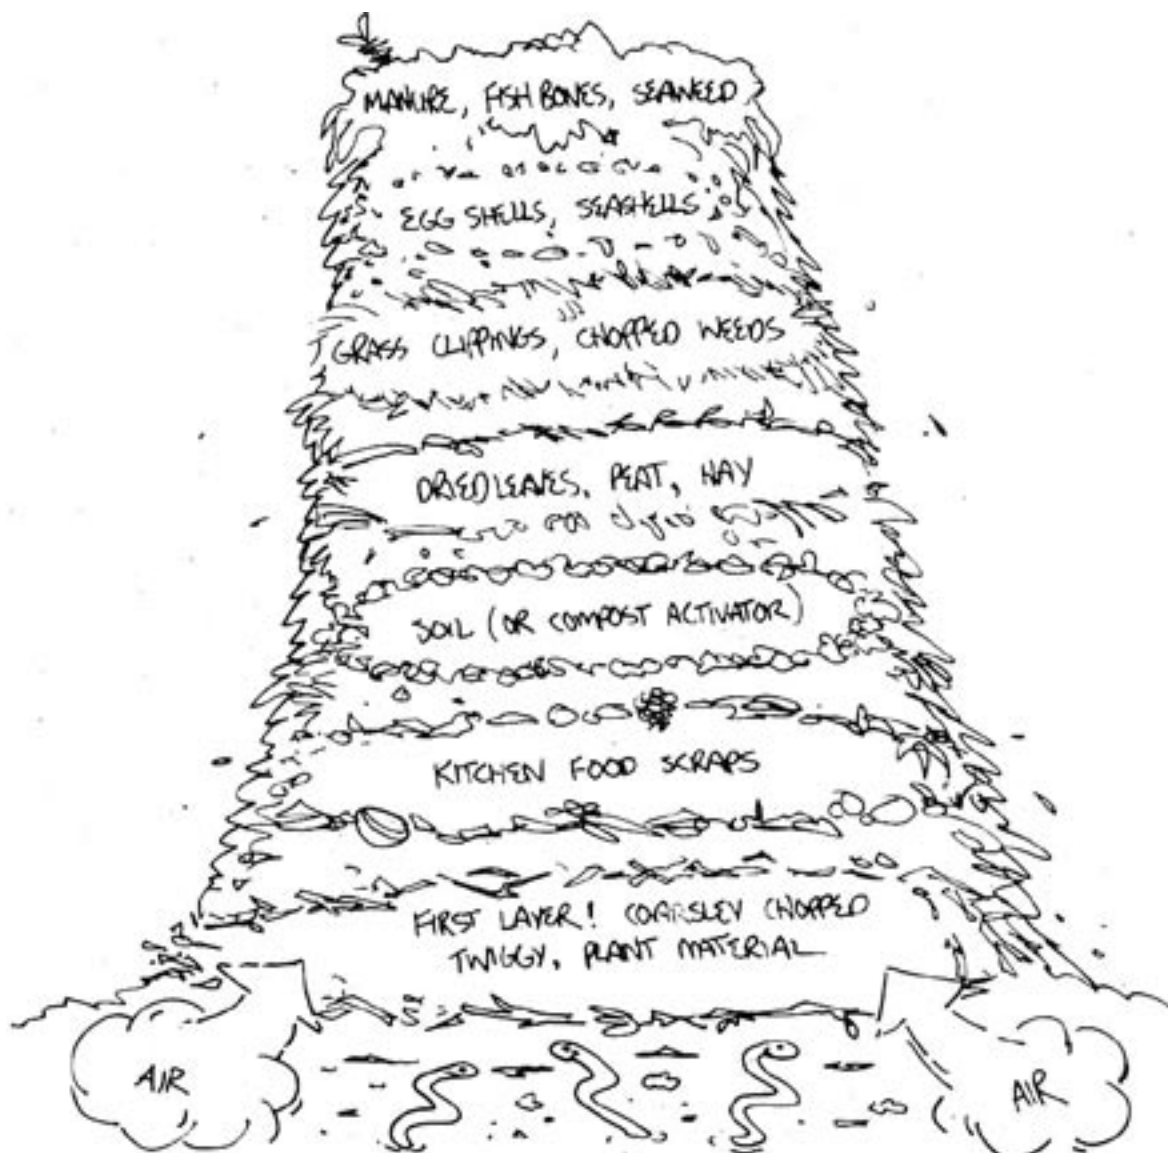 MANURE, FISH BONES, SEAWEED
EGG SHELLS, SEASHELLS
GRASS CLIPPINGS, CHOPPED WEEDS
DRIED LEAVES, PEAT, HAY
SOIL (OR COMPOST ACTIVATOR)
KITCHEN FOOD SCRAPS
FIRST LAYER! COARSLEY CHOPPED
TWIGGY, PLANT MATERIAL
AIR
AIR